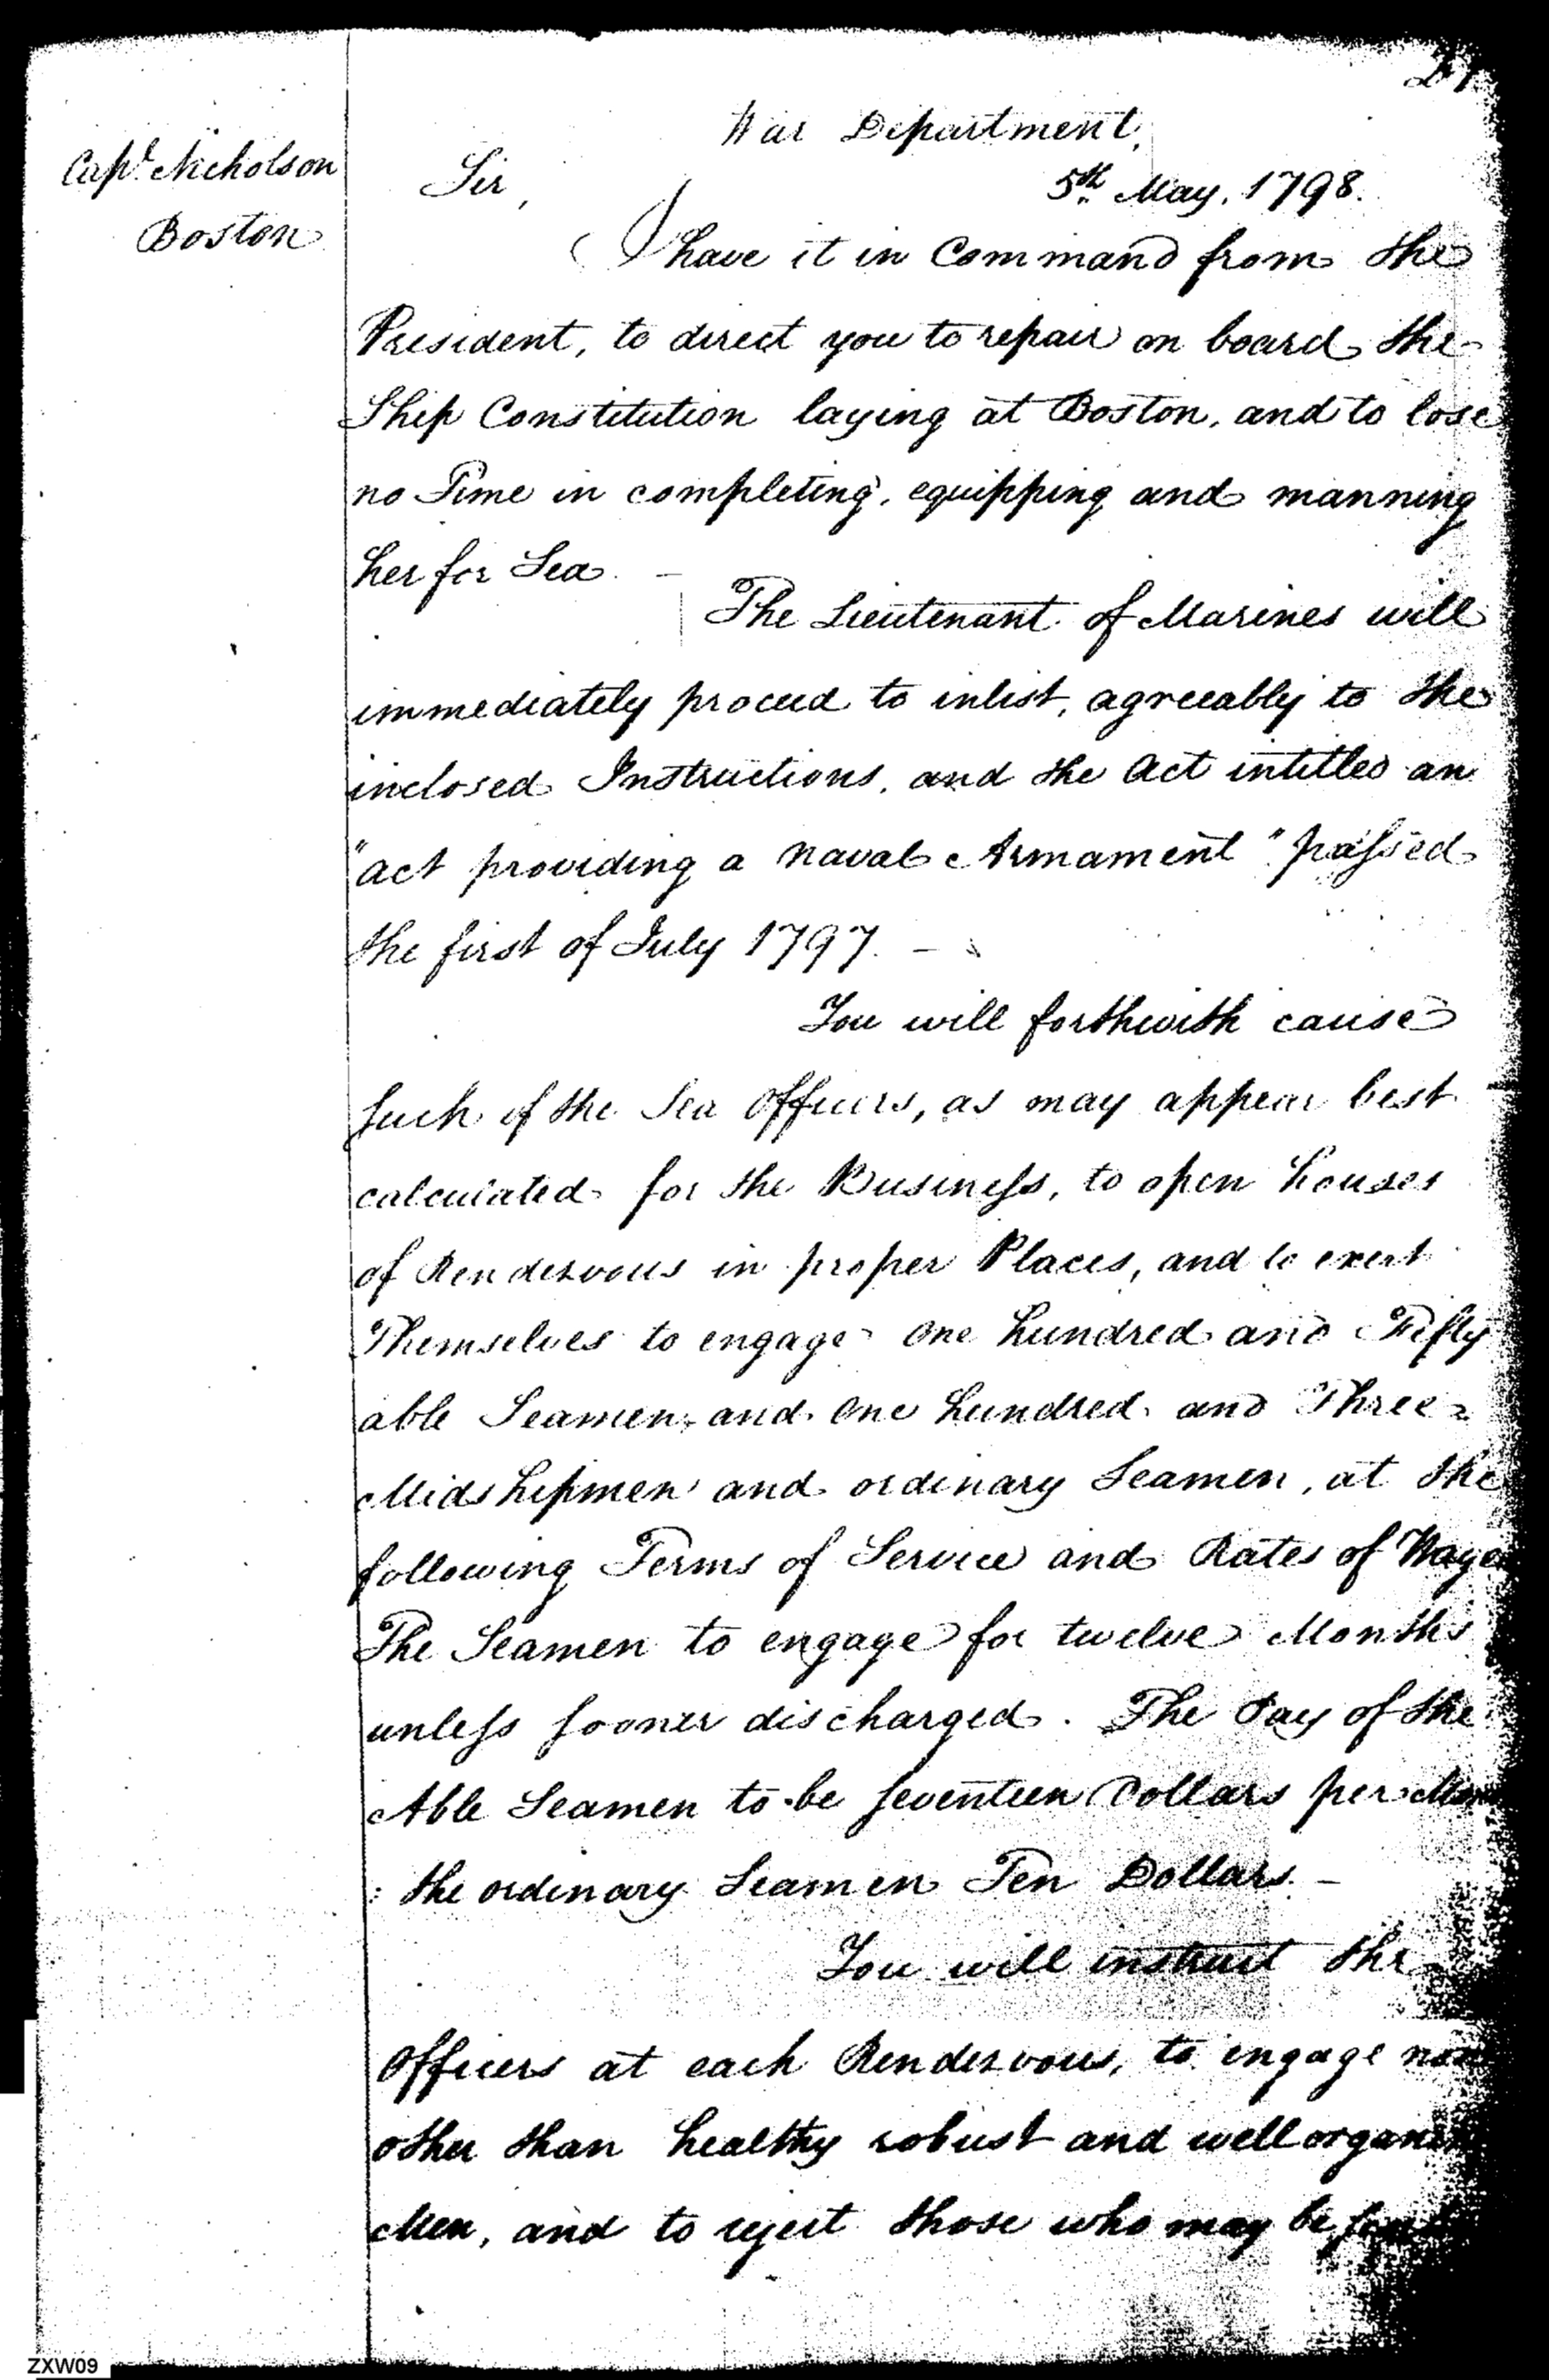 27
War Department,
Capt. Nicholson
Boston
Sir,
5th May, 1798.
I have it in Command from the
President, to direct you to repair on board the
Ship Constitution laying at Boston, and to lose
no Time in completing, equipping and manning
her for Sea. —
The Lieutenant of Marines will
immediately proceed to inlist, agreeably to the
inclosed Instructions, and the Act intitled an
"act providing a Naval Armament" passed
the first of July 1797. —
You will forthwith cause
such of the Sea Officers, as may appear best
calculated for the Business, to open houses
of Rendezvous in proper Places, and to exert
Themselves to engage One hundred and Fifty
able Seamen, and One hundred and Three
Midshipmen and ordinary Seamen, at the
following Terms of Service and Rates of Wages
The Seamen to engage for twelve Months
unless sooner discharged. The Pay of the
Able Seamen to be seventeen Dollars per
: the ordinary Seamen Ten Dollars. —
You will instruct the
Officers at each Rendezvous, to engage
other than healthy robust and well
Men, and to reject those who may be
ZXW09